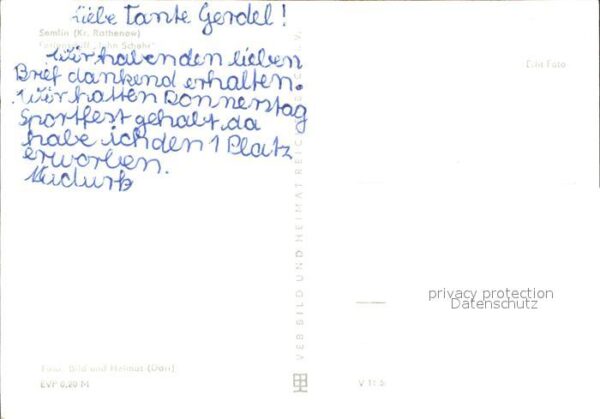 Liebe Tante Gerdel!
Semlin (Kr. Rathenow)
"John Schehr"
Echt Foto
Wir haben den lieben
Brief dankend erhalten.
Wir hatten Donnerstag
Sportfest gehabt, da
habe ich den 1 Platz
erworben.
VEB BILD UND HEIMAT REICHENBACH I. V.
privacy protection
Datenschutz
Foto: Bild und Heimat (Darr)
EVP 0,20 M
V 11 5